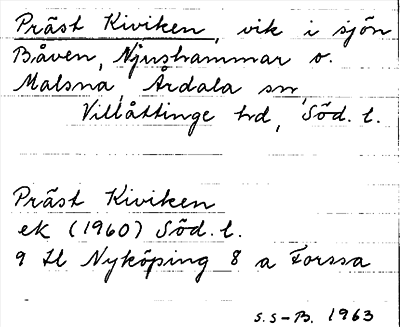 Präst Kiviken, vik i sjön
Båven, Njushammar o.
Malsna, Årdala sn,
Villåttinge hd, Söd. l.
Präst Kiviken
ek (1960) Söd. l.
9 H Nyköping 8 a Forssa
S.S-B. 1963